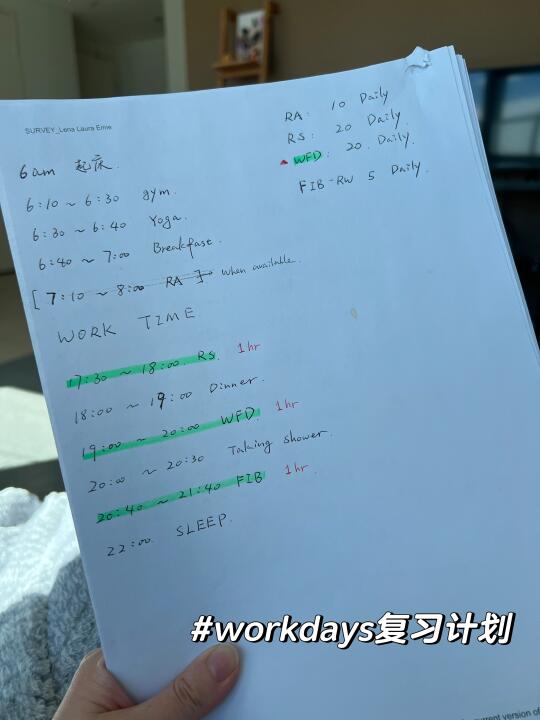 SURVEY_Lena Laura Emie
RA: 10 Daily
RS: 20 Daily.
WFD: 20. Daily.
FIB-RW 5 Daily.
6am 起床.
6:10 ~ 6:30 gym.
6:30 ~ 6:40 Yoga.
6:40 ~ 7:00 Breakfast.
[7:10 ~ 8:00 RA] When available.
WORK TIME
17:30 ~ 18:00. RS. 1hr
18:00 ~ 19:00 Dinner.
19:00 ~ 20:00 WFD. 1hr
20:00 ~ 20:30 Taking shower.
20:40 ~ 21:40 FIB 1hr.
22:00. SLEEP.
#workdays复习计划
current version of